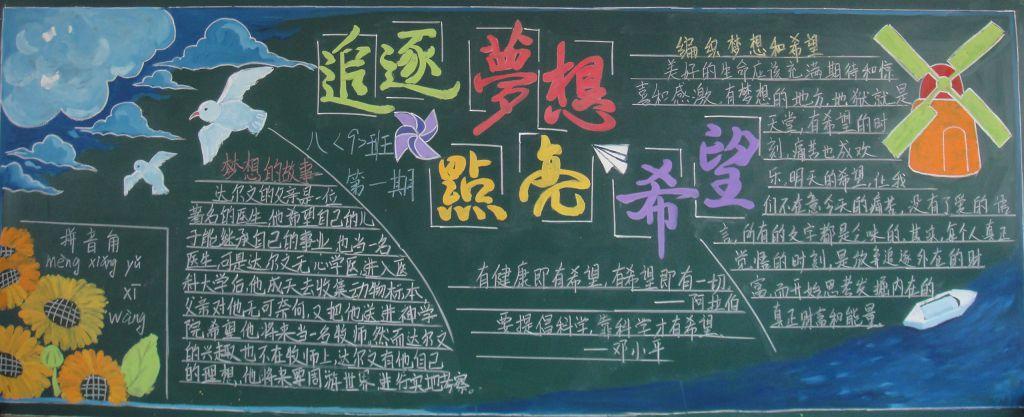 追逐夢想
點亮希望
八<9>班
第一期
梦想的故事
达尔文的父亲是一位
著名的医生,他希望自己的儿
子能继承自己的事业,也当一名
医生,可是达尔文无心学医,进入医
科大学后,他成天去收集动物标本
父亲对他无可奈何,又把他送进神学
院,希望他将来当一名牧师,然而达尔文
的兴趣也不在牧师上,达尔文有他自己
的理想,他将来要周游世界,进行实地考察。
拼音角
mèng xiǎng yǔ
xī
wàng
有健康即有希望,有希望即有一切
——阿拉伯
要提倡科学,靠科学才有希望
——邓小平
编织梦想和希望
美好的生命应该充满期待和惊
喜和感激,有梦想的地方,地狱就是
天堂,有希望的时
刻,痛苦也成欢
乐,明天的希望,让我
们不在意今天的痛苦,没有了爱的语
言,所有的文字都是乏味的,其实,每个人真正
觉悟的时刻,是放弃追逐外在的财
富,而开始思考发掘内在的
真正财富和能量